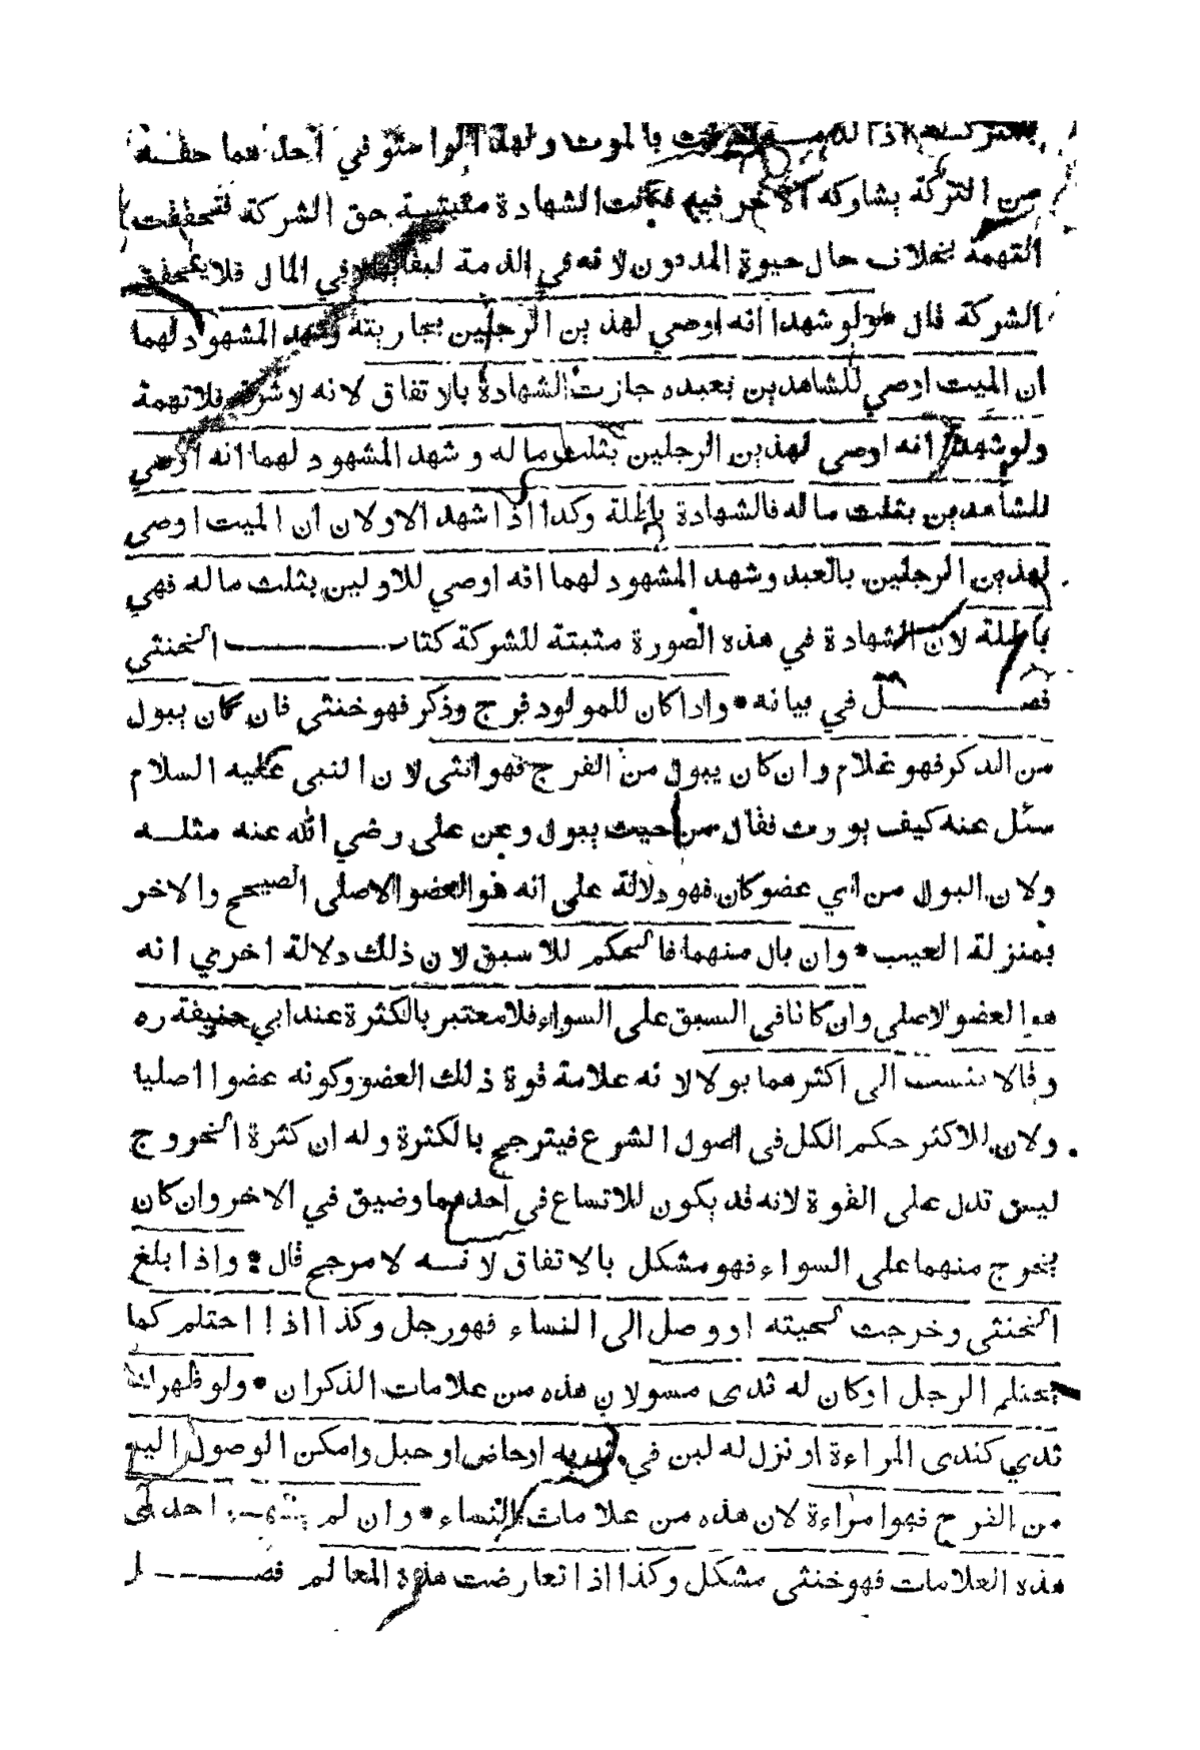 بالتركة اذ الذمة خربت بالموت ولهذا لوا ستوفي احد هما حقــه
من التركة يشاركه الآخر فيه فكانت الشهادة مثبتــة حق الشركة فتحققت
التهمة بخلاف حال حيوة المديون لا نه في الذمة لبقائها لا في المال فلا يتحقق
الشركة قال ولو شهدا انه اوصي لهذ ين الرجلين بجا ريته وشهد المشهود لهما
ان الميت اوصي للشاهدين بعبده جازت الشهادة بالا تفاق لا نه لا شركة فلا تهمة
ولو شهدا انه اوصى لهذين الرجلين بثلث ما له و شهد المشهود لهما انه اوصي
للشاهدين بثلث ما له فالشهادة باطلة وكذا اذا شهد الاولان ان الميت اوصى
لهذين الرجلين بالعبد وشهد المشهود لهما انه اوصي للاولين بثلث ما له فهي
باطلة لان الشهادة في هذه الصورة مثبتة للشركة كتاب ــــــــ الخنثى
فصــــــــل في بيانه • واذا كان للمولود فرج وذكر فهو خنثى فان كان يبول
من الذكر فهو غلام وان كان يبول من الفرج فهو انثى لان النبى عليه السلام
سئل عنه كيف يورث فقال من حيث يبول وعن على رضي الله عنه مثلــه
ولان البول من اي عضو كان فهو دلالة على انه هو العضو الاصلى الصحيح والاخر
بمنزلة العيب • وان بال منهما فالحكم للاسبق لان ذلك دلالة اخرى انه
هو العضو الاصلى وان كانا فى السبق على السواء فلا معتبر بالكثرة عند ابي حنيفة ره
وقالا ينسب الى اكثرهما بولا لانه علامة قوة ذلك العضو وكونه عضوا اصليا
ولان للاكثر حكم الكل فى اصول الشرع فيترجح بالكثرة وله ان كثرة الخروج
ليس تدل على القوة لانه قد يكون للاتساع فى احدهما وضيق في الاخر وان كان
يخرج منهما على السواء فهو مشكل بالاتفاق لانــه لا مرجح قال • واذا بلغ
الخنثى وخرجت لحيته او وصل الى النساء فهو رجل وكذا اذا احتلم كما
يحتلم الرجل او كان له ثدى مستو لان هذه من علامات الذكران • ولو ظهر له
ثدي كثدى المراءة او نزل له لبن في ثديه او حاض او حبل وامكن الوصول اليه
من الفرج فهو امراءة لان هذه من علامات النساء • وان لم يظهر احدى
هذه العلامات فهو خنثى مشكل وكذا اذا تعارضت هذه المعالم فصــــــل